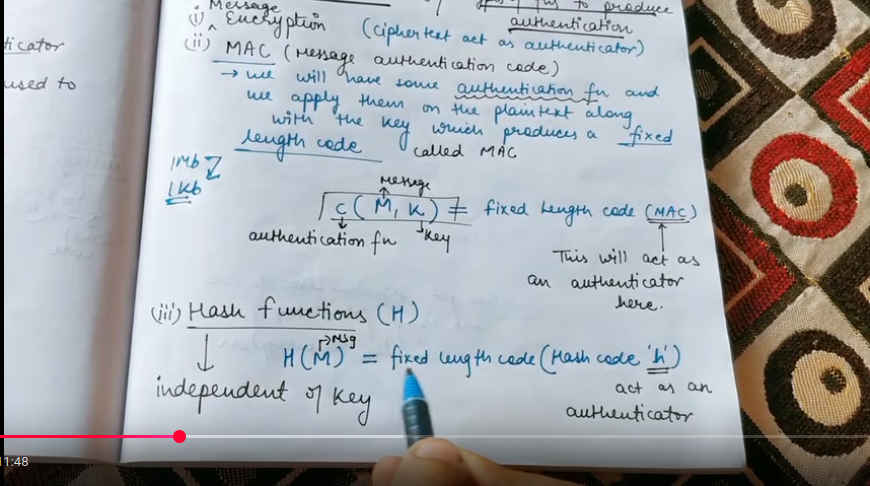 of fns to produce
authentication
(i) Message Encryption (ciphertext act as authenticator)
(ii) MAC (Message authentication code)
→ we will have some authentication fn and
we apply them on the plaintext along
with the key which produces a fixed
length code called MAC
ticator
used to
1Mb
1Kb
message
C(M, K) = fixed length code (MAC)
authentication fn key
This will act as
an authenticator
here.
(iii) Hash functions (H)
msg
H(M) = fixed length code (Hash code 'h')
independent of key
act as an
authenticator
11:48